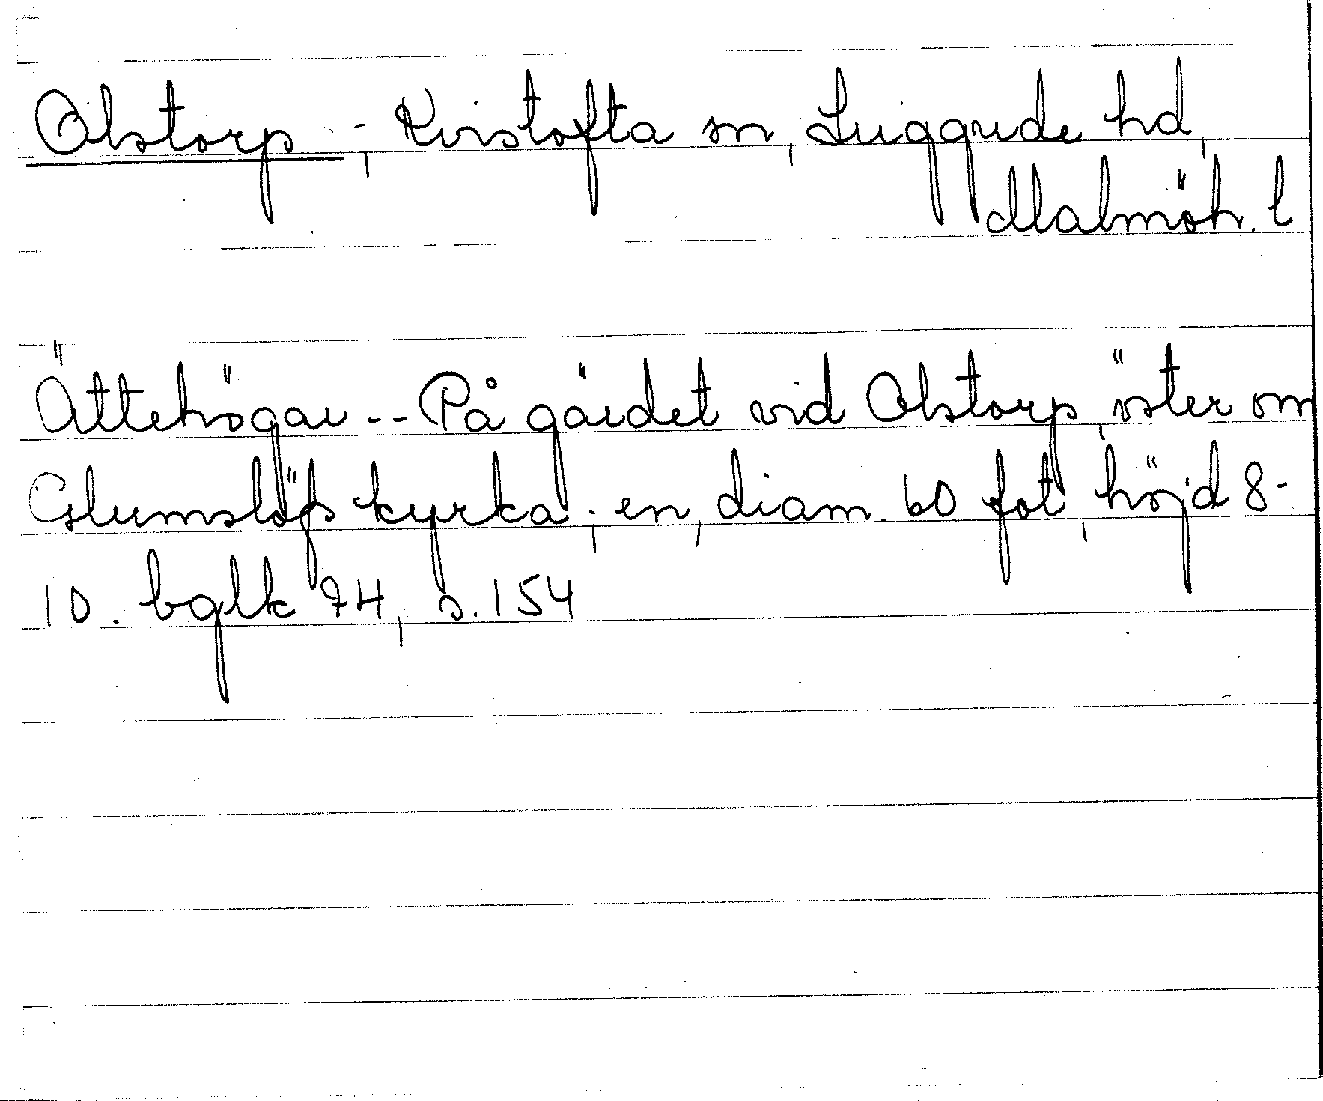 Olstorp, Kvistofta sn, Luggude hd,
Malmöh. l
Ättehögar -- På gärdet vid Olstorp, öster om
Glumslöfs kyrka; en, diam. 60 fot, höjd 8-
10. bglk 74, s.154